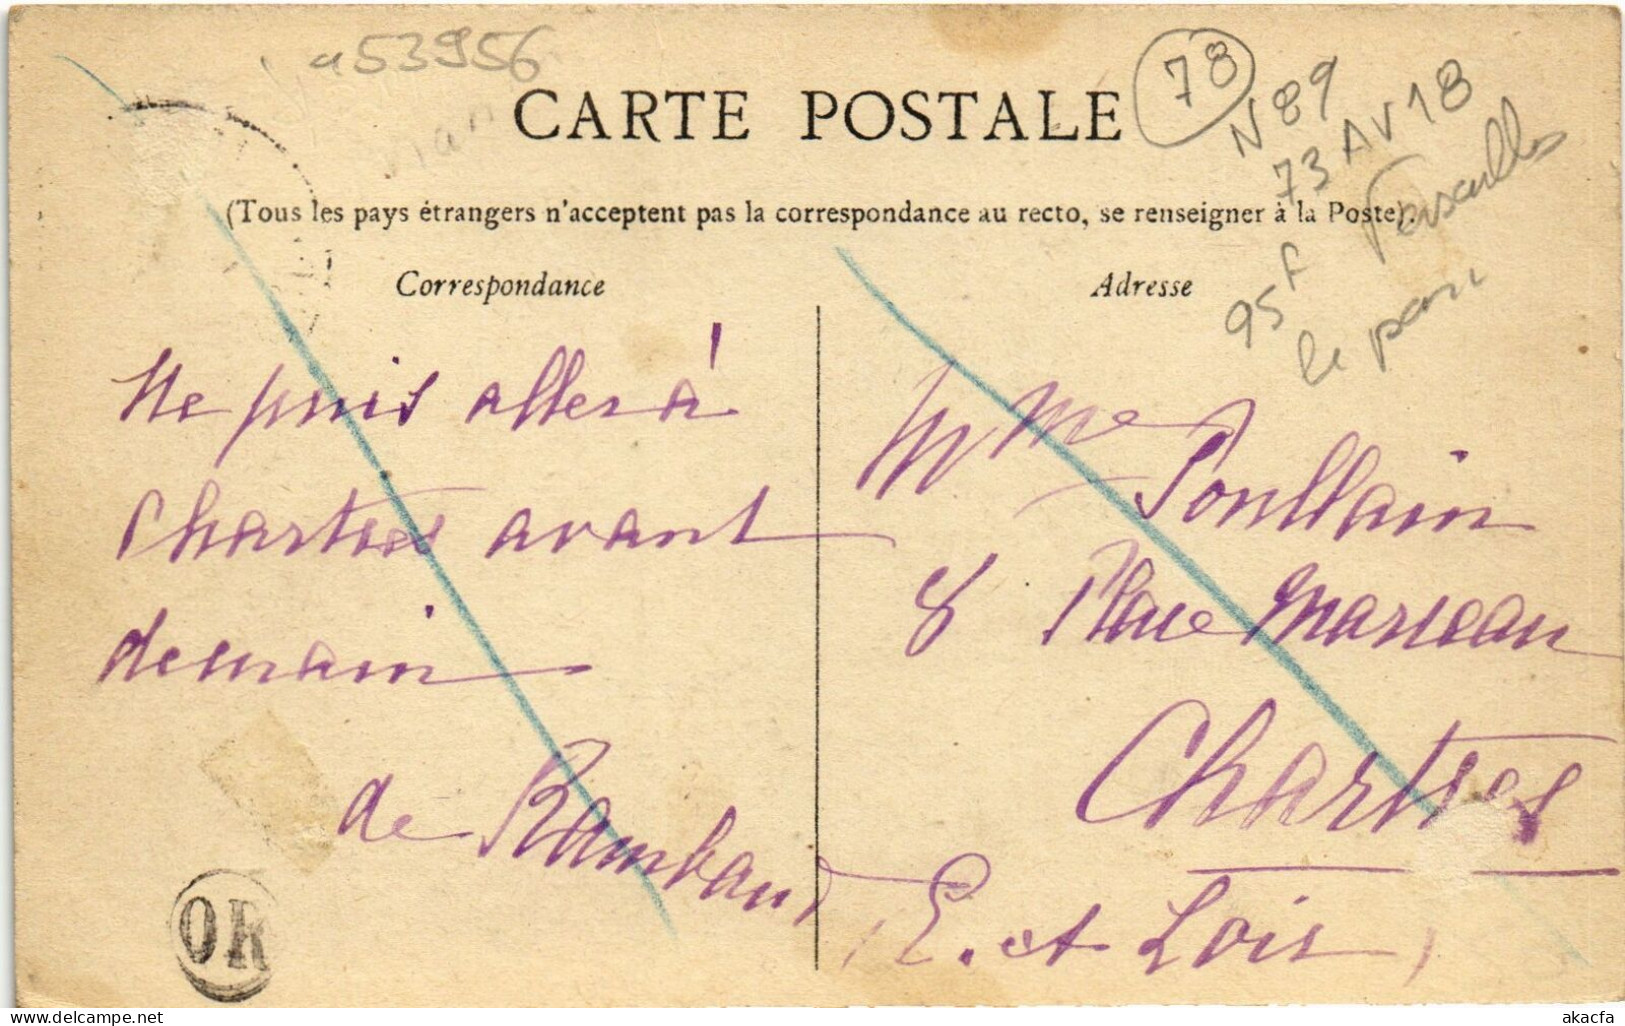 a53956
CARTE POSTALE
78
N 89
73 AV 18
Versailles
95F
le parc
(Tous les pays étrangers n'acceptent pas la correspondance au recto, se renseigner à la Poste).
Correspondance
Adresse
Ne puis aller à
Chartres avant
demain
de Rambaud
Mme Poullain
8 Place Marceau
Chartres
(E. et Loir)
OR
akacfa